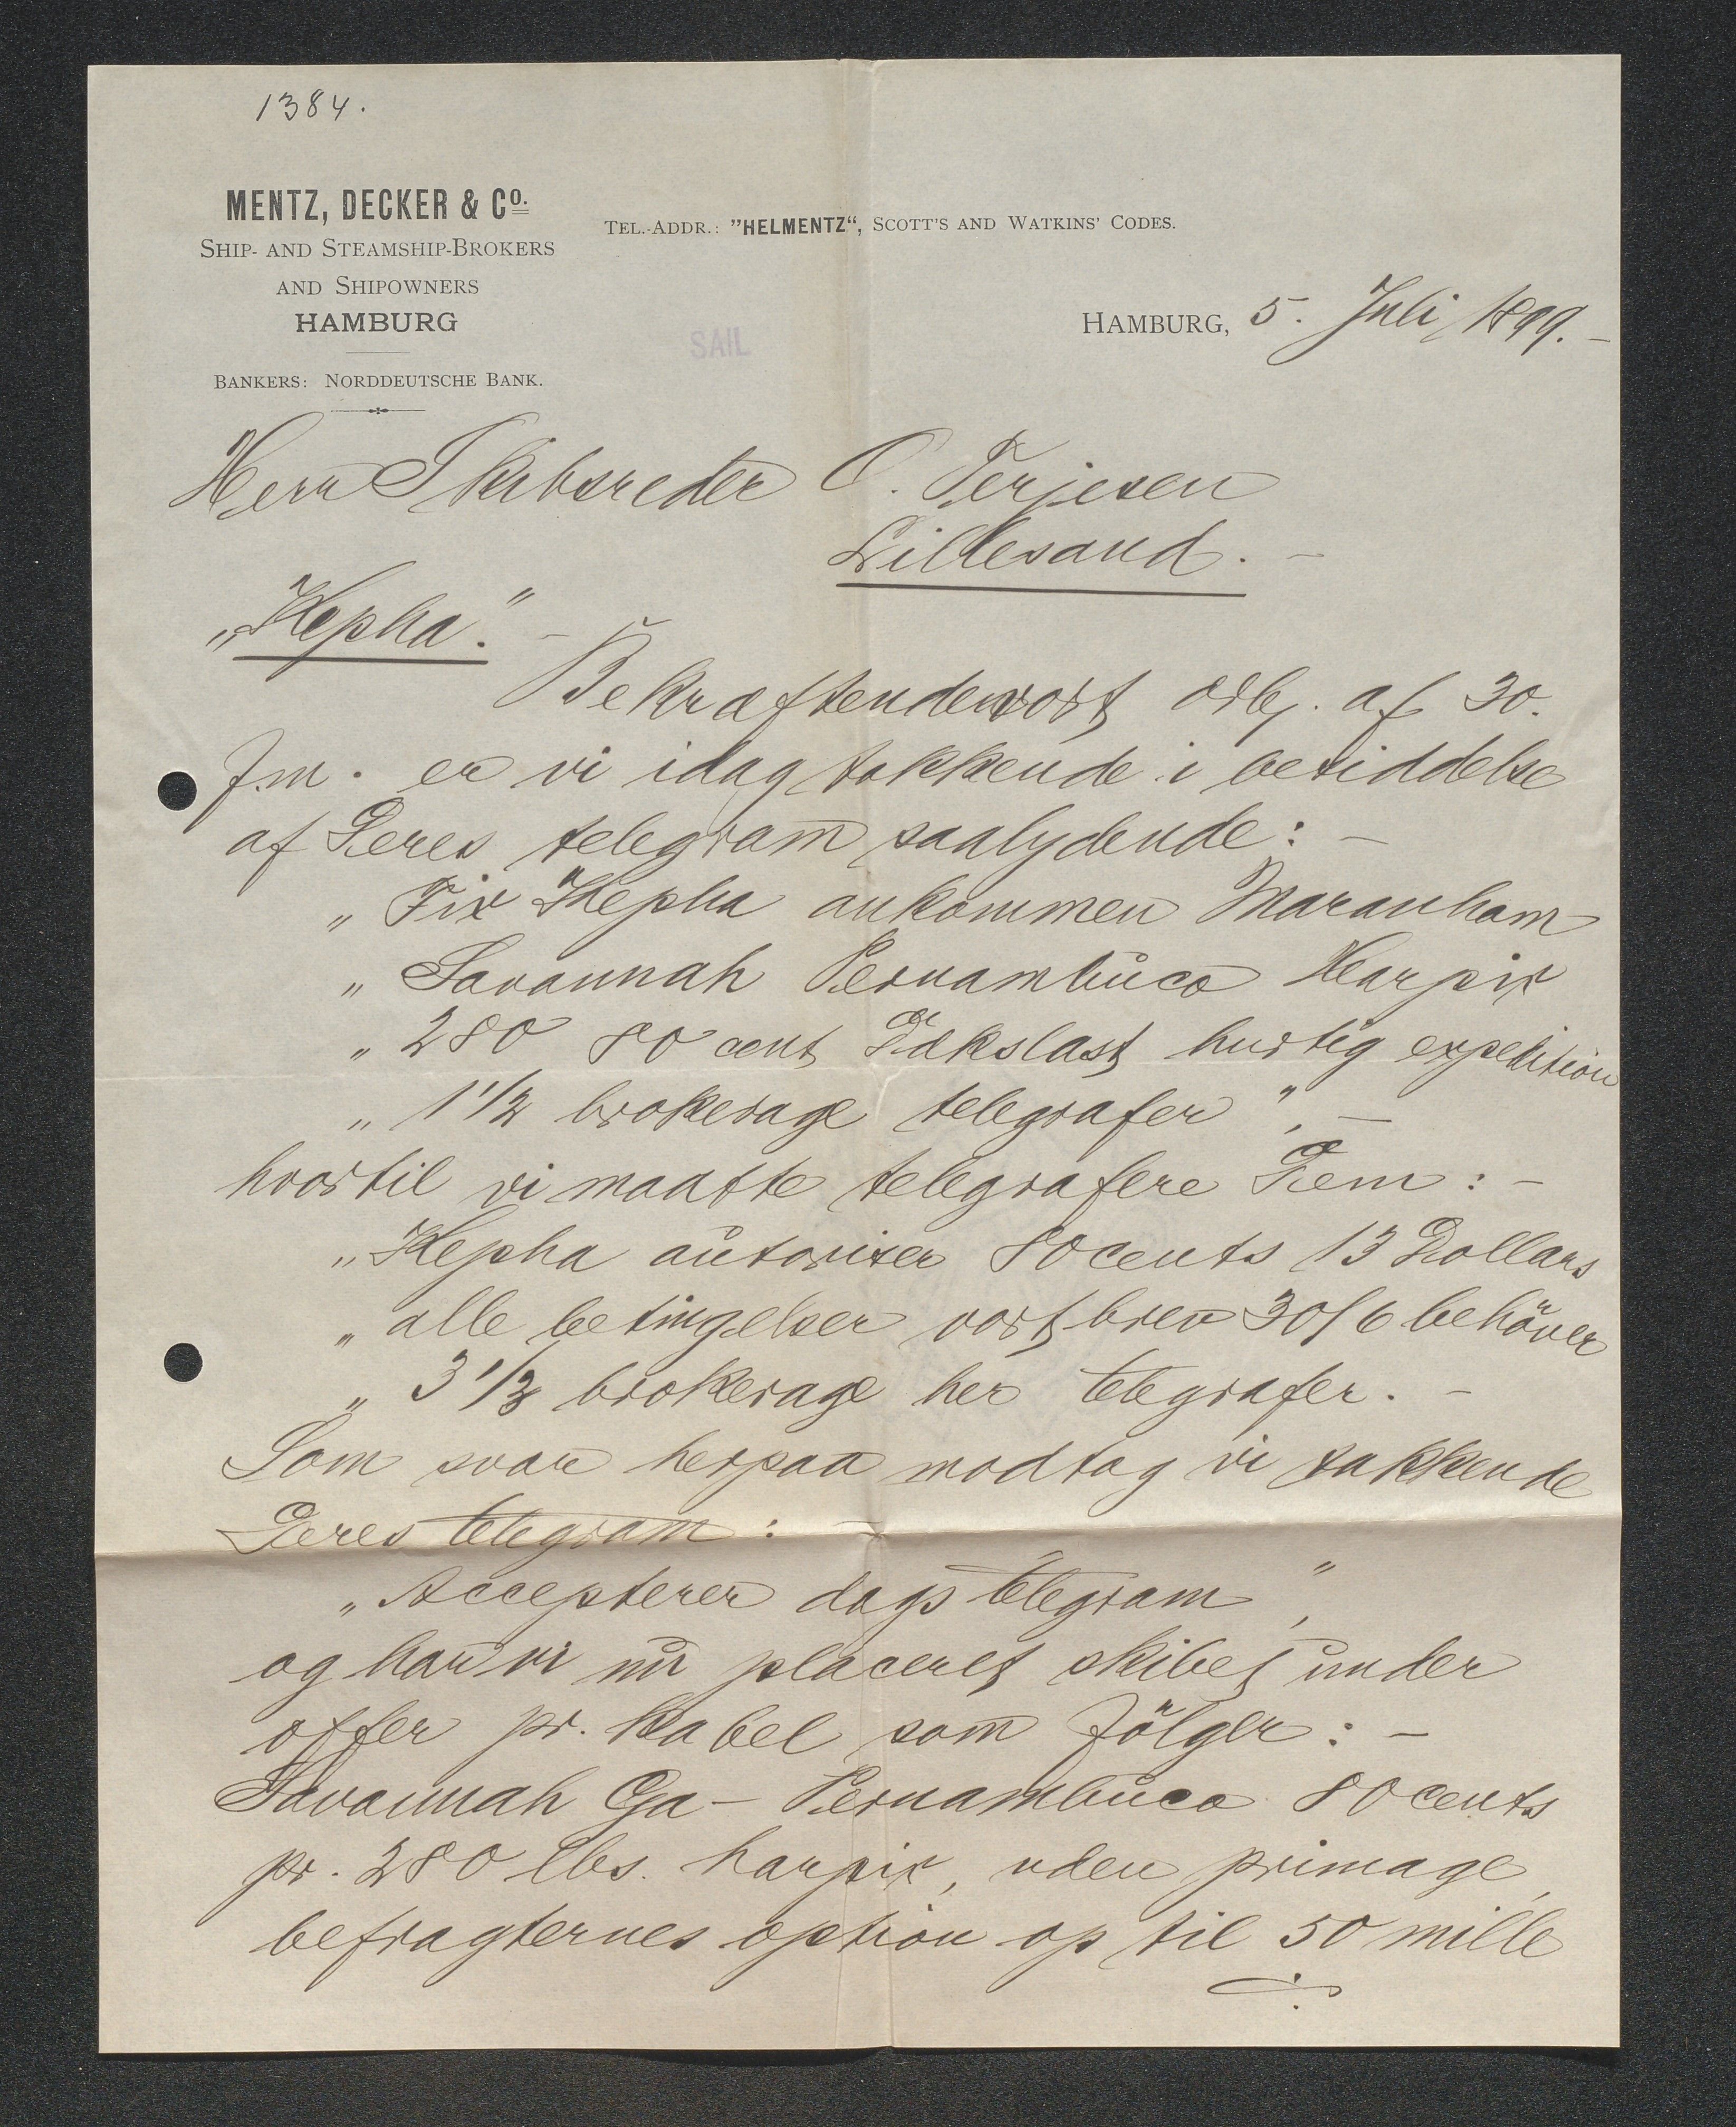 1384.
MENTZ, DECKER & Co.
SHIP- AND STEAMSHIP-BROKERS
AND SHIPOWNERS
HAMBURG
BANKERS: NORDDEUTSCHE BANK.
TEL.-ADDR.: "HELMENTZ", SCOTT'S AND WATKINS' CODES.
SAIL
HAMBURG, 5. Juli 1899.-
Herr Skibsreder O. Terjesen
Lillesand. -
"Hepha". -
Bekræftende vort ærbj. af 30.
f.m. er vi idag takkende i besiddelse
af Deres telegram saalydende: -
" Fix Hepha ankommen Maranham
" Savannah Pernambuco Harpix
" 280 80 cent Dækslast hurtig expedition
" 1 1/2 brokerage telegrafer", -
hvortil vi maatte telegrafere Dem: -
" Hepha autoriser 80 cents 13 Dollars
" alle betingelser vort brev 30/6 behöver
" 3 1/3 brokerage her telegrafer. -
Som svar herpaa modtog vi takkende
Deres telegram: -
" Accepterer dags telegram",
og har vi nu placeret skibet under
offer pr. Kabel som fölger: -
Savannah Ga - Pernambuco 80 cents
pr. 280 lbs. harpix, uden primage,
befragternes option op til 50 mille